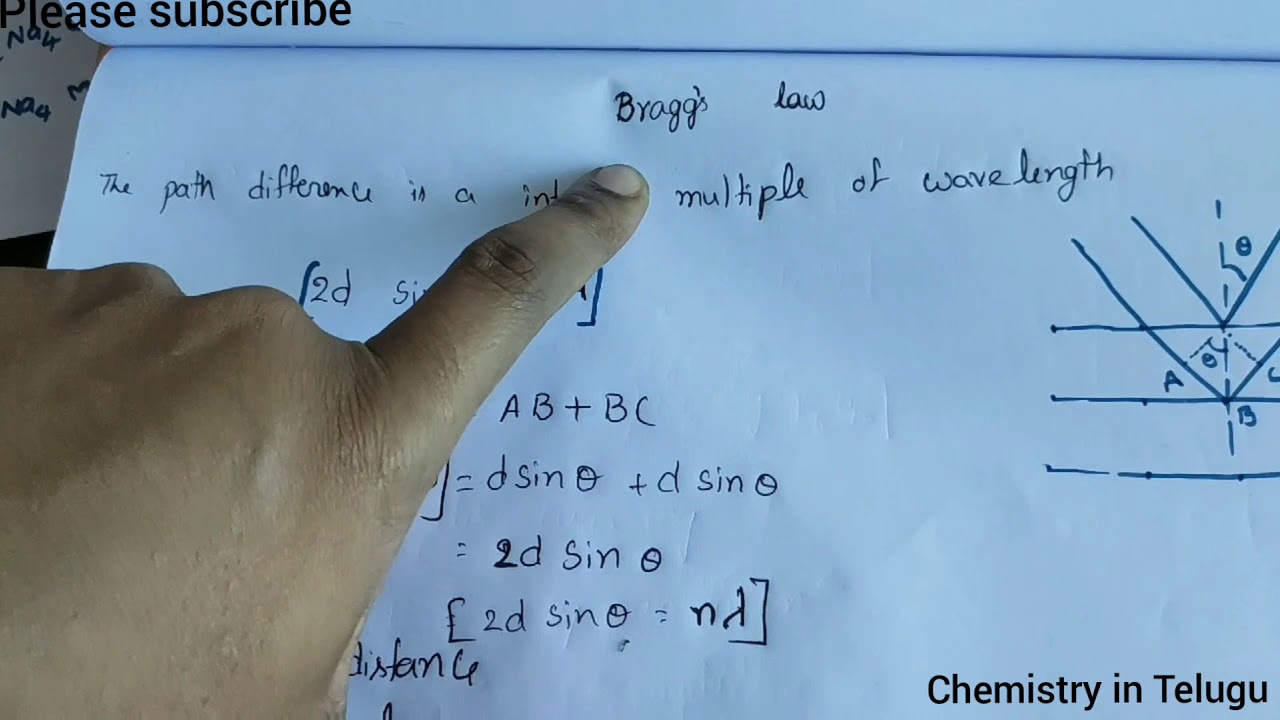 Please subscribe
Na4
Na4
Bragg's law
The path difference is a multiple of wavelength
[2d
]
AB + BC
] = d sin θ + d sin θ
= 2d sin θ
[2d sin θ = nλ]
distance
θ
θ
A
C
B
Chemistry in Telugu